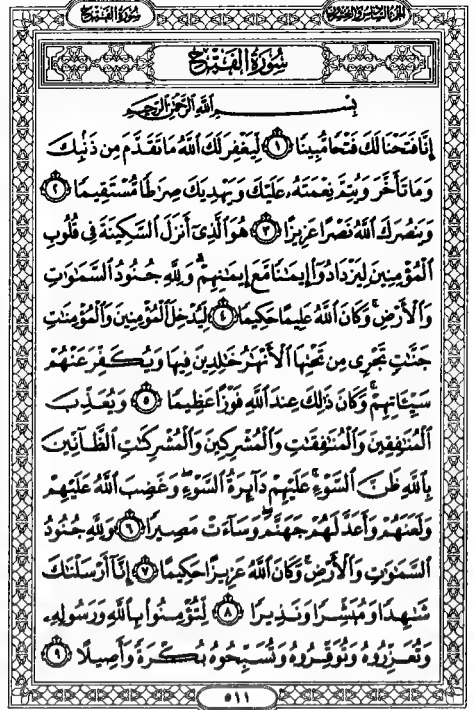 سُورَةُ الْفَتْحِ
الجزء السادس والعشرون
سُورَةُ الْفَتْحِ
بِسْمِ اللَّهِ الرَّحْمَٰنِ الرَّحِيمِ
إِنَّا فَتَحْنَا لَكَ فَتْحًا مُّبِينًا ١ لِّيَغْفِرَ لَكَ اللَّهُ مَا تَقَدَّمَ مِن ذَنۢبِكَ
وَمَا تَأَخَّرَ وَيُتِمَّ نِعْمَتَهُۥ عَلَيْكَ وَيَهْدِيَكَ صِرَٰطًا مُّسْتَقِيمًا ٢
وَيَنصُرَكَ اللَّهُ نَصْرًا عَزِيزًا ٣ هُوَ الَّذِىٓ أَنزَلَ السَّكِينَةَ فِى قُلُوبِ
الْمُؤْمِنِينَ لِيَزْدَادُوٓا۟ إِيمَٰنًا مَّعَ إِيمَٰنِهِمْ ۗ وَلِلَّهِ جُنُودُ السَّمَٰوَٰتِ
وَالْأَرْضِ ۚ وَكَانَ اللَّهُ عَلِيمًا حَكِيمًا ٤ لِّيُدْخِلَ الْمُؤْمِنِينَ وَالْمُؤْمِنَٰتِ
جَنَّٰتٍ تَجْرِى مِن تَحْتِهَا الْأَنْهَٰرُ خَٰلِدِينَ فِيهَا وَيُكَفِّرَ عَنْهُمْ
سَيِّـَٔاتِهِمْ ۚ وَكَانَ ذَٰلِكَ عِندَ اللَّهِ فَوْزًا عَظِيمًا ٥ وَيُعَذِّبَ
الْمُنَٰفِقِينَ وَالْمُنَٰفِقَٰتِ وَالْمُشْرِكِينَ وَالْمُشْرِكَٰتِ الظَّآنِّينَ
بِاللَّهِ ظَنَّ السَّوْءِ ۚ عَلَيْهِمْ دَآئِرَةُ السَّوْءِ ۖ وَغَضِبَ اللَّهُ عَلَيْهِمْ
وَلَعَنَهُمْ وَأَعَدَّ لَهُمْ جَهَنَّمَ ۖ وَسَآءَتْ مَصِيرًا ٦ وَلِلَّهِ جُنُودُ
السَّمَٰوَٰتِ وَالْأَرْضِ ۚ وَكَانَ اللَّهُ عَزِيزًا حَكِيمًا ٧ إِنَّآ أَرْسَلْنَٰكَ
شَٰهِدًا وَمُبَشِّرًا وَنَذِيرًا ٨ لِّتُؤْمِنُوا۟ بِاللَّهِ وَرَسُولِهِۦ
وَتُعَزِّرُوهُ وَتُوَقِّرُوهُ وَتُسَبِّحُوهُ بُكْرَةً وَأَصِيلًا ٩
٥١١